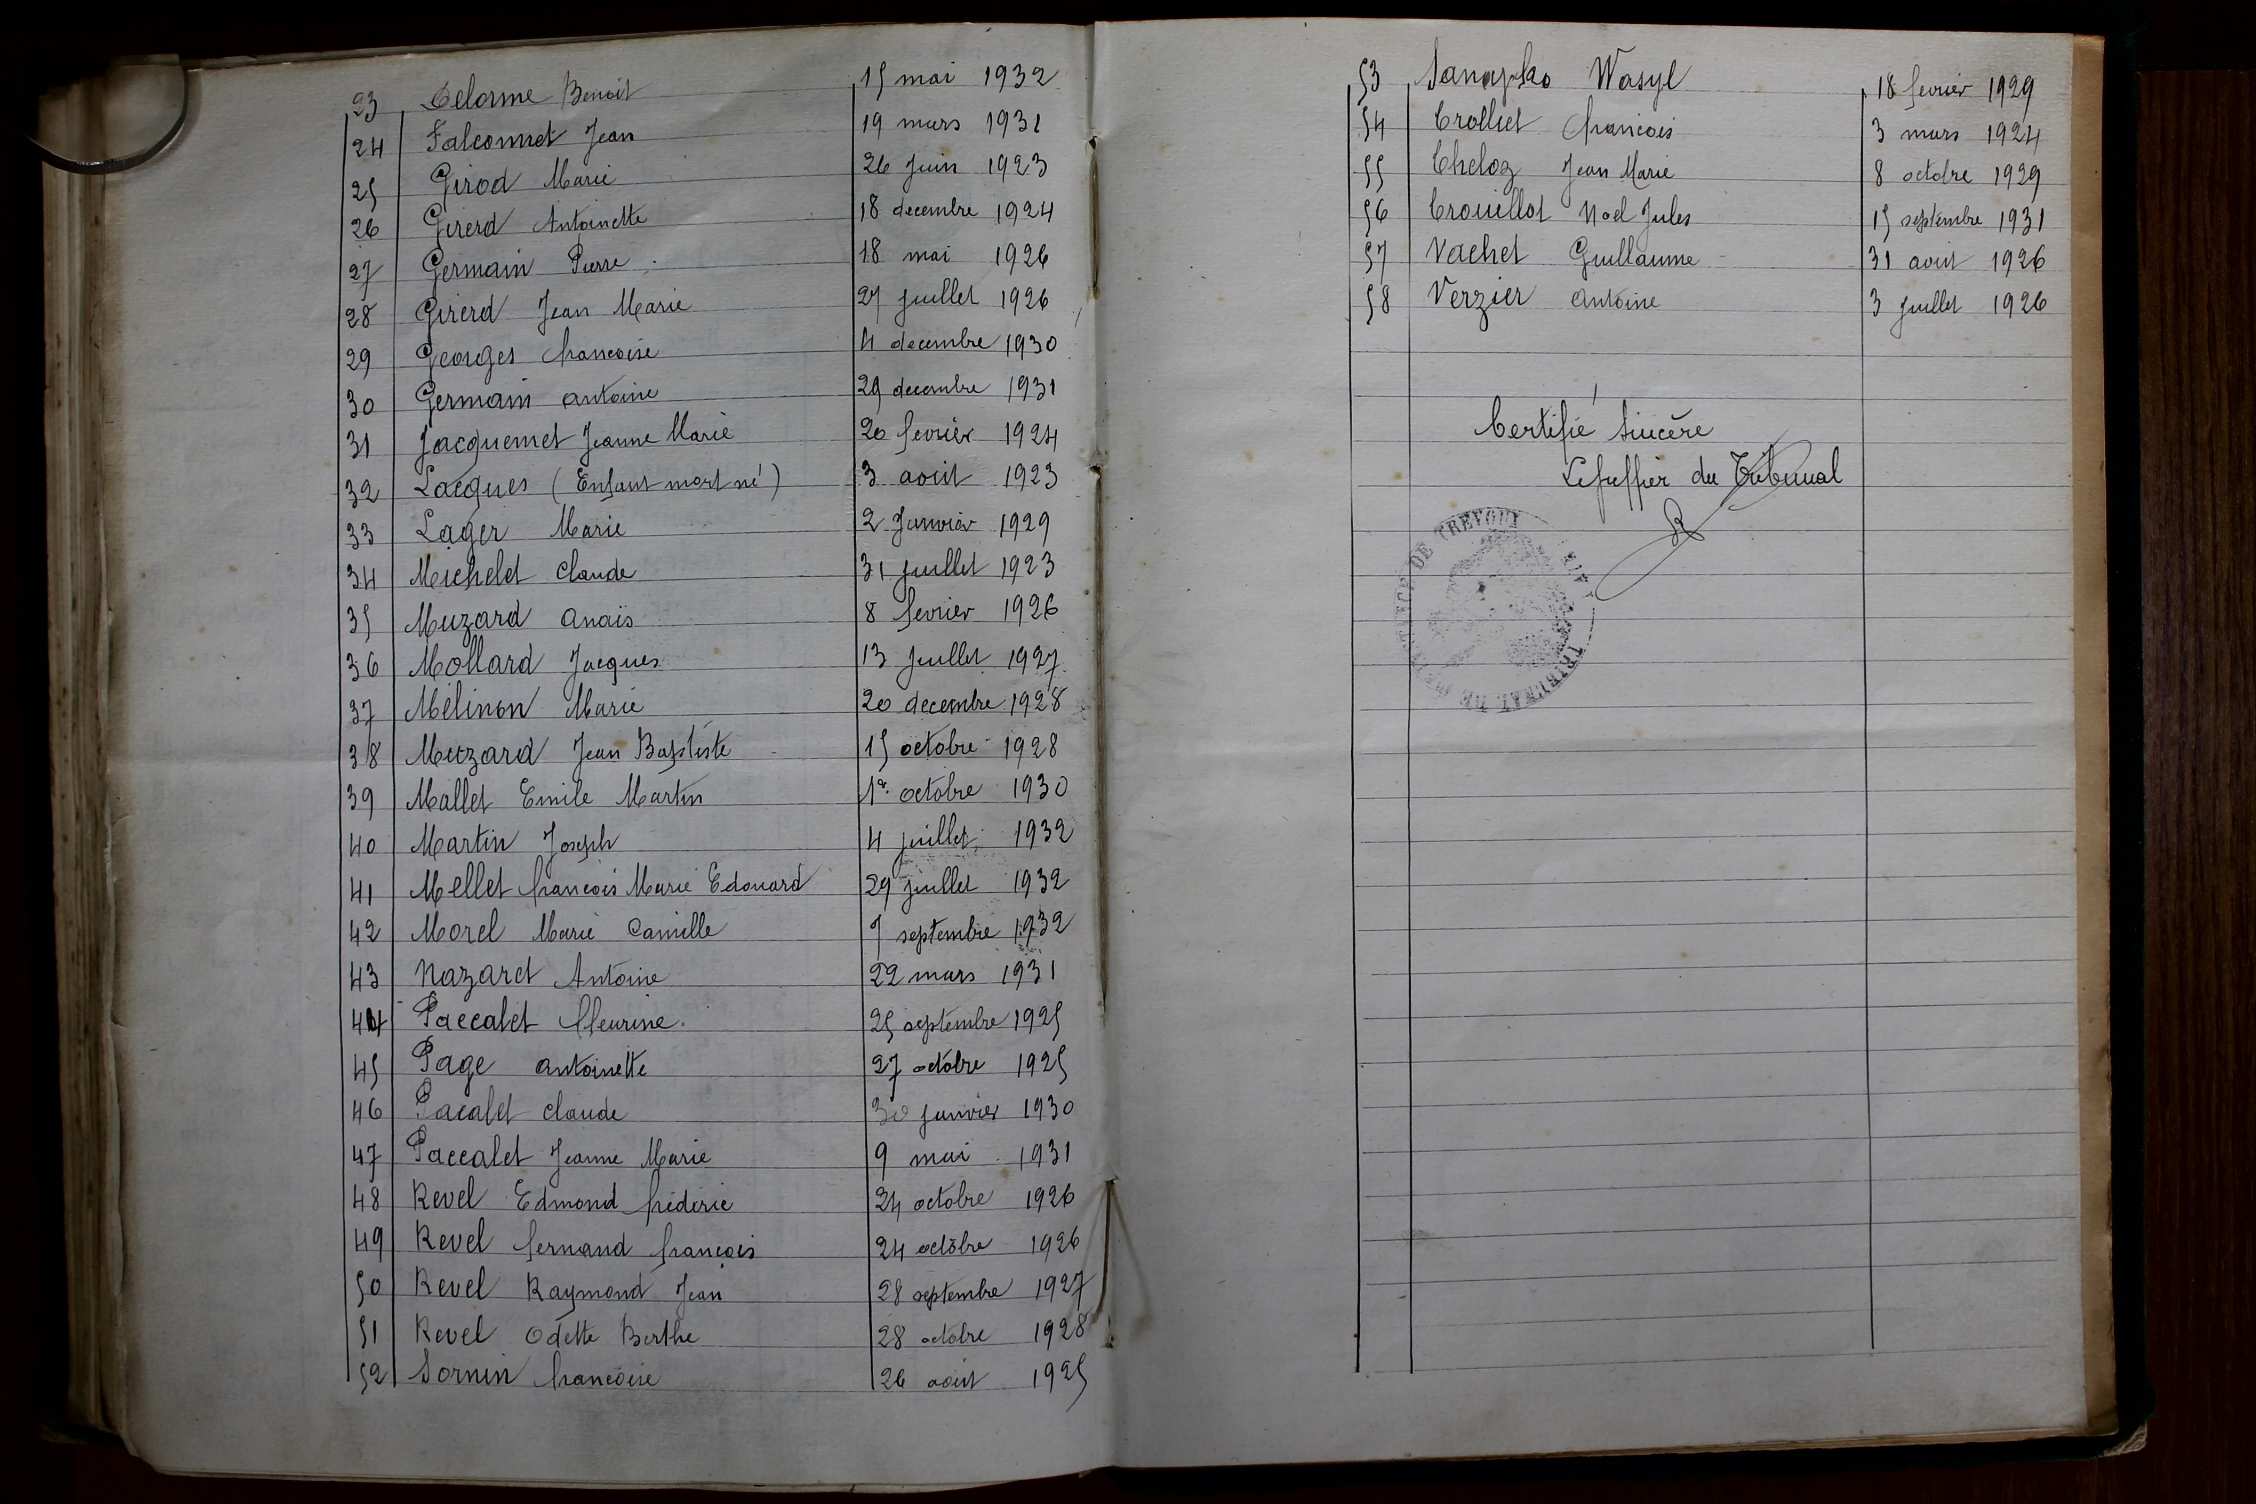 23 Delorme Benoit 15 mai 1932
24 Falconnet Jean 19 mars 1931
25 Girod Marie 26 Juin 1923
26 Girerd Antoinette 18 decembre 1924
27 Germain Pierre 18 mai 1926
28 Girerd Jean Marie 27 juillet 1926
29 Georges francoise 4 decembre 1930
30 Germain antoine 29 decembre 1931
31 Jacquemet Jeanne Marie 20 fevrier 1924
32 Lacques (Enfant mort né) 3 aout 1923
33 Lager Marie 2 Janvier 1929
34 Michelet Claude 31 juillet 1923
35 Muzard anaïs 8 fevrier 1926
36 Mollard Jacques 13 juillet 1927
37 Mélinon Marie 20 decembre 1928
38 Muzard Jean Baptiste 15 octobre 1928
39 Mallet Emile Martin 1er octobre 1930
40 Martin Joseph 4 juillet 1932
41 Mellet francois Marie Edouard 29 juillet 1932
42 Morel Marie Camille 7 septembre 1932
43 Nazaret Antoine 22 mars 1931
44 Paccalet fleurine 25 septembre 1925
45 Page antoinette 27 octobre 1925
46 Pacalet claude 30 janvier 1930
47 Paccalet Jeanne Marie 9 mai 1931
48 Revel Edmond frédéric 24 octobre 1926
49 Revel fernand françois 24 octobre 1926
50 Revel Raymond Jean 28 septembre 1927
51 Revel Odette Berthe 28 octobre 1928
52 Sornin francoise 26 aout 1925
53 Wasyl 18 fevrier 1929
54 Trolliet francois 3 mars 1924
55 Theloz Jean Marie 8 octobre 1929
56 Trouillot Noel Jules 15 septembre 1931
57 Vachet Guillaume 31 aout 1926
58 Verzier antoine 3 juillet 1926
Certifié Sincère
Le Greffier du Tribunal
TRIBUNAL DE DE TREVOUX